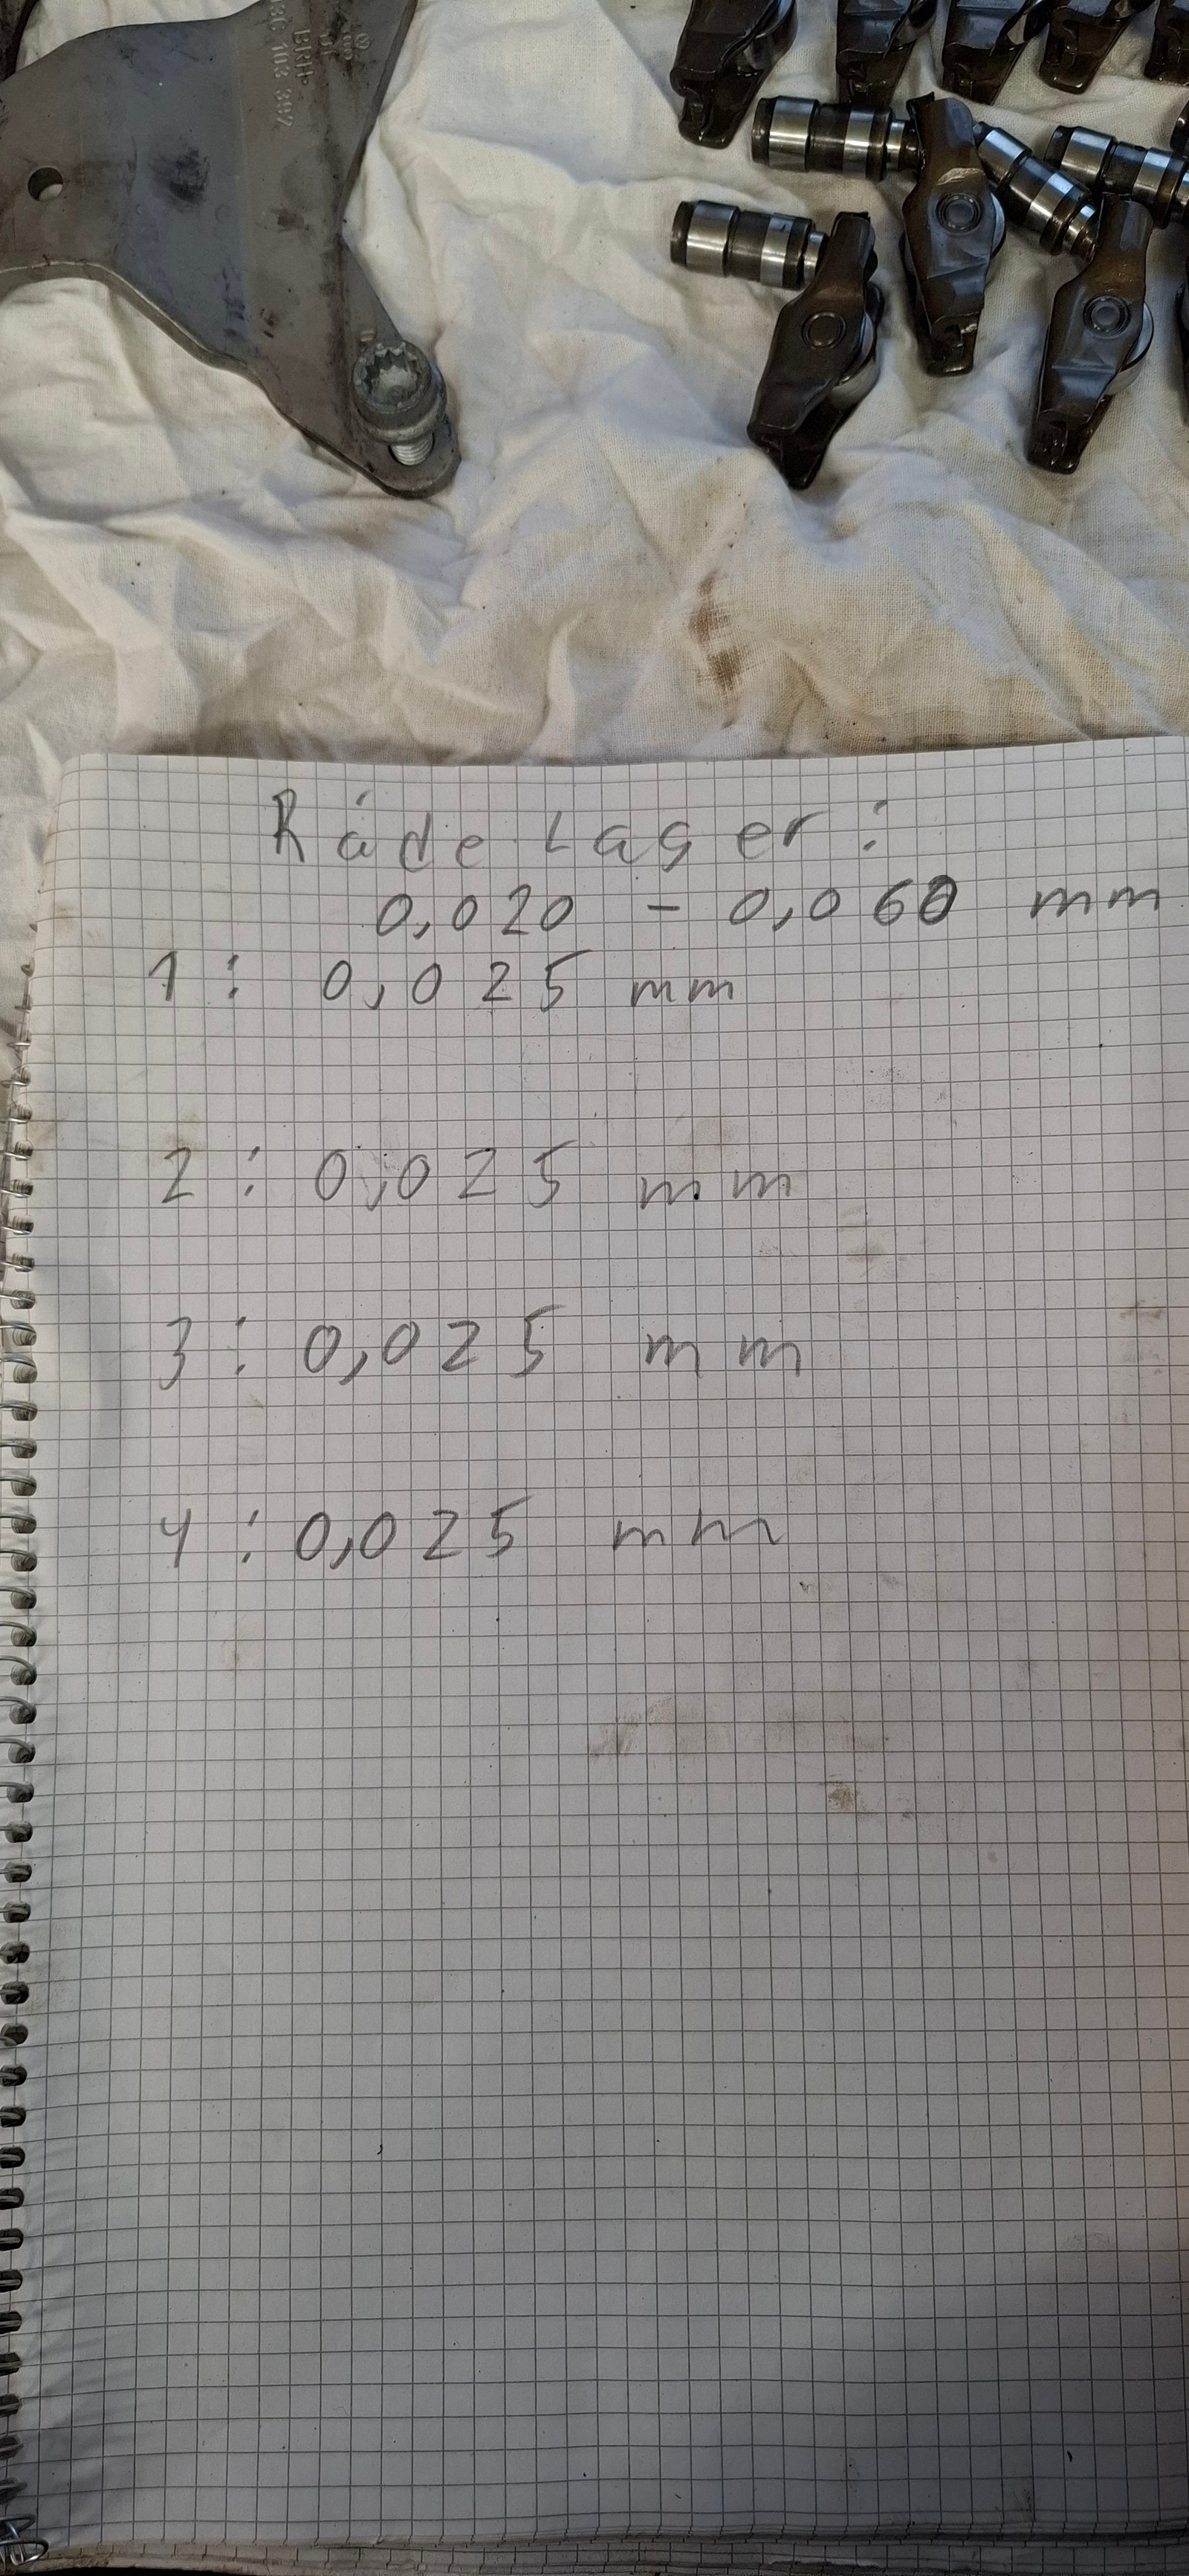 BRP
103 397
Ráde Lager:
0,020 - 0,060 mm
1: 0,025 mm
2: 0,025 mm
3: 0,025 mm
4: 0,025 mm